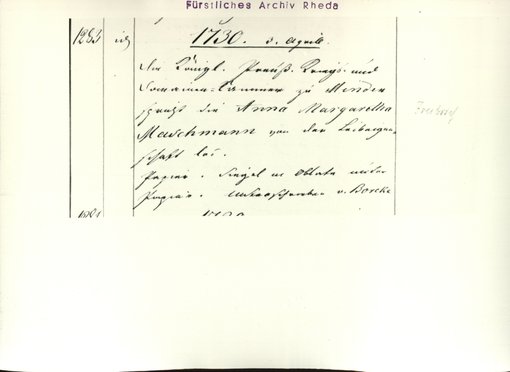 Fürstliches Archiv Rheda
1283 id 1730. 3. April.
Die Königl. Preuß. Kriegs- und
Domainen-Cammer zu Minden
spricht die Anna Margaretha
Maschmann von der Leibeigen-
schaft los.
Papier. Siegel in Oblate unter
Papier. Unterschrieben v. Borcke